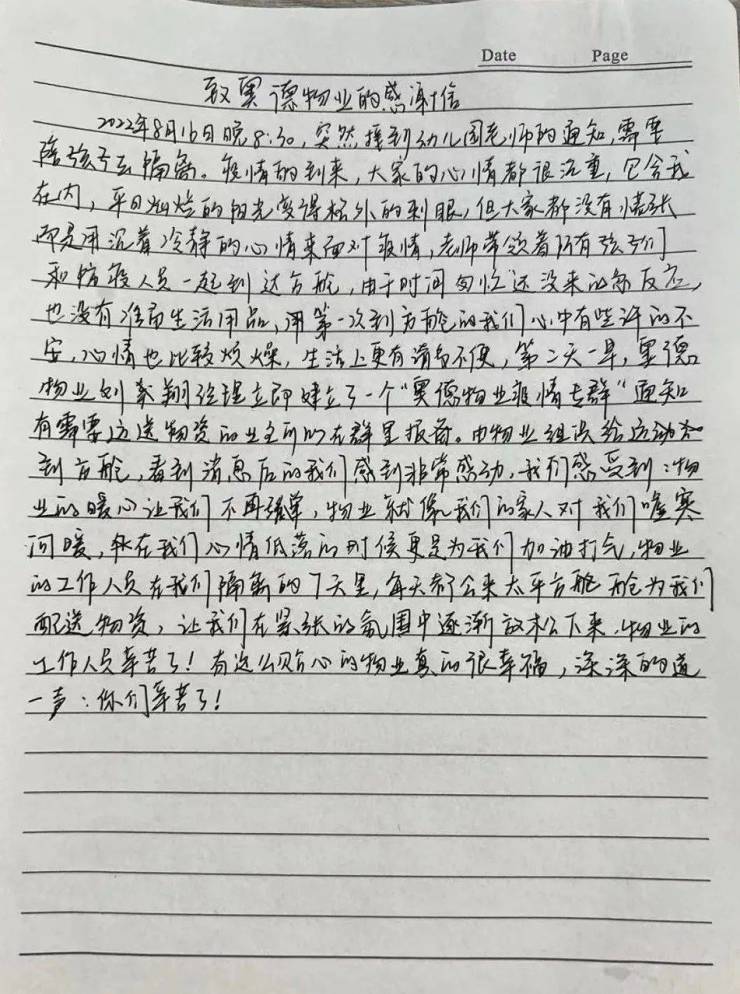 Date Page
致奥德物业的感谢信
2022年8月16日晚8:30,突然接到幼儿园老师的通知,需要
陪孩子去隔离。疫情的到来,大家的心情都很沉重,包含我
在内,平日灿烂的阳光变得格外的刺眼,但大家都没有慌张
而是用沉着冷静的心情来面对疫情,老师带领着所有孩子们
和防疫人员一起到达方舱,由于时间匆忙还没来的急反应,
也没有准备生活用品,用第一次到方舱的我们心中有些许的不
安,心情也比较烦燥,生活上更有诸多不便,第二天一早,奥德
物业刘 翔经理立即建立了一个“奥德物业疫情专群”通知
有需要运送物资的业主可以在群里报备。由物业组织给运动
到方舱,看到消息后的我们感到非常感动,我们感受到:物
业的暖心让我们不再孤单,物业就像我们的家人对我们嘘寒
问暖,在我们心情低落的时候更是为我们加油打气,物业
的工作人员在我们隔离的7天里,每天都会来太平方舱 舱为我们
配送物资,让我们在紧张的氛围中逐渐放松下来,物业的
工作人员辛苦了!有这么贴心的物业真的很幸福,深深的道
一声:你们辛苦了!